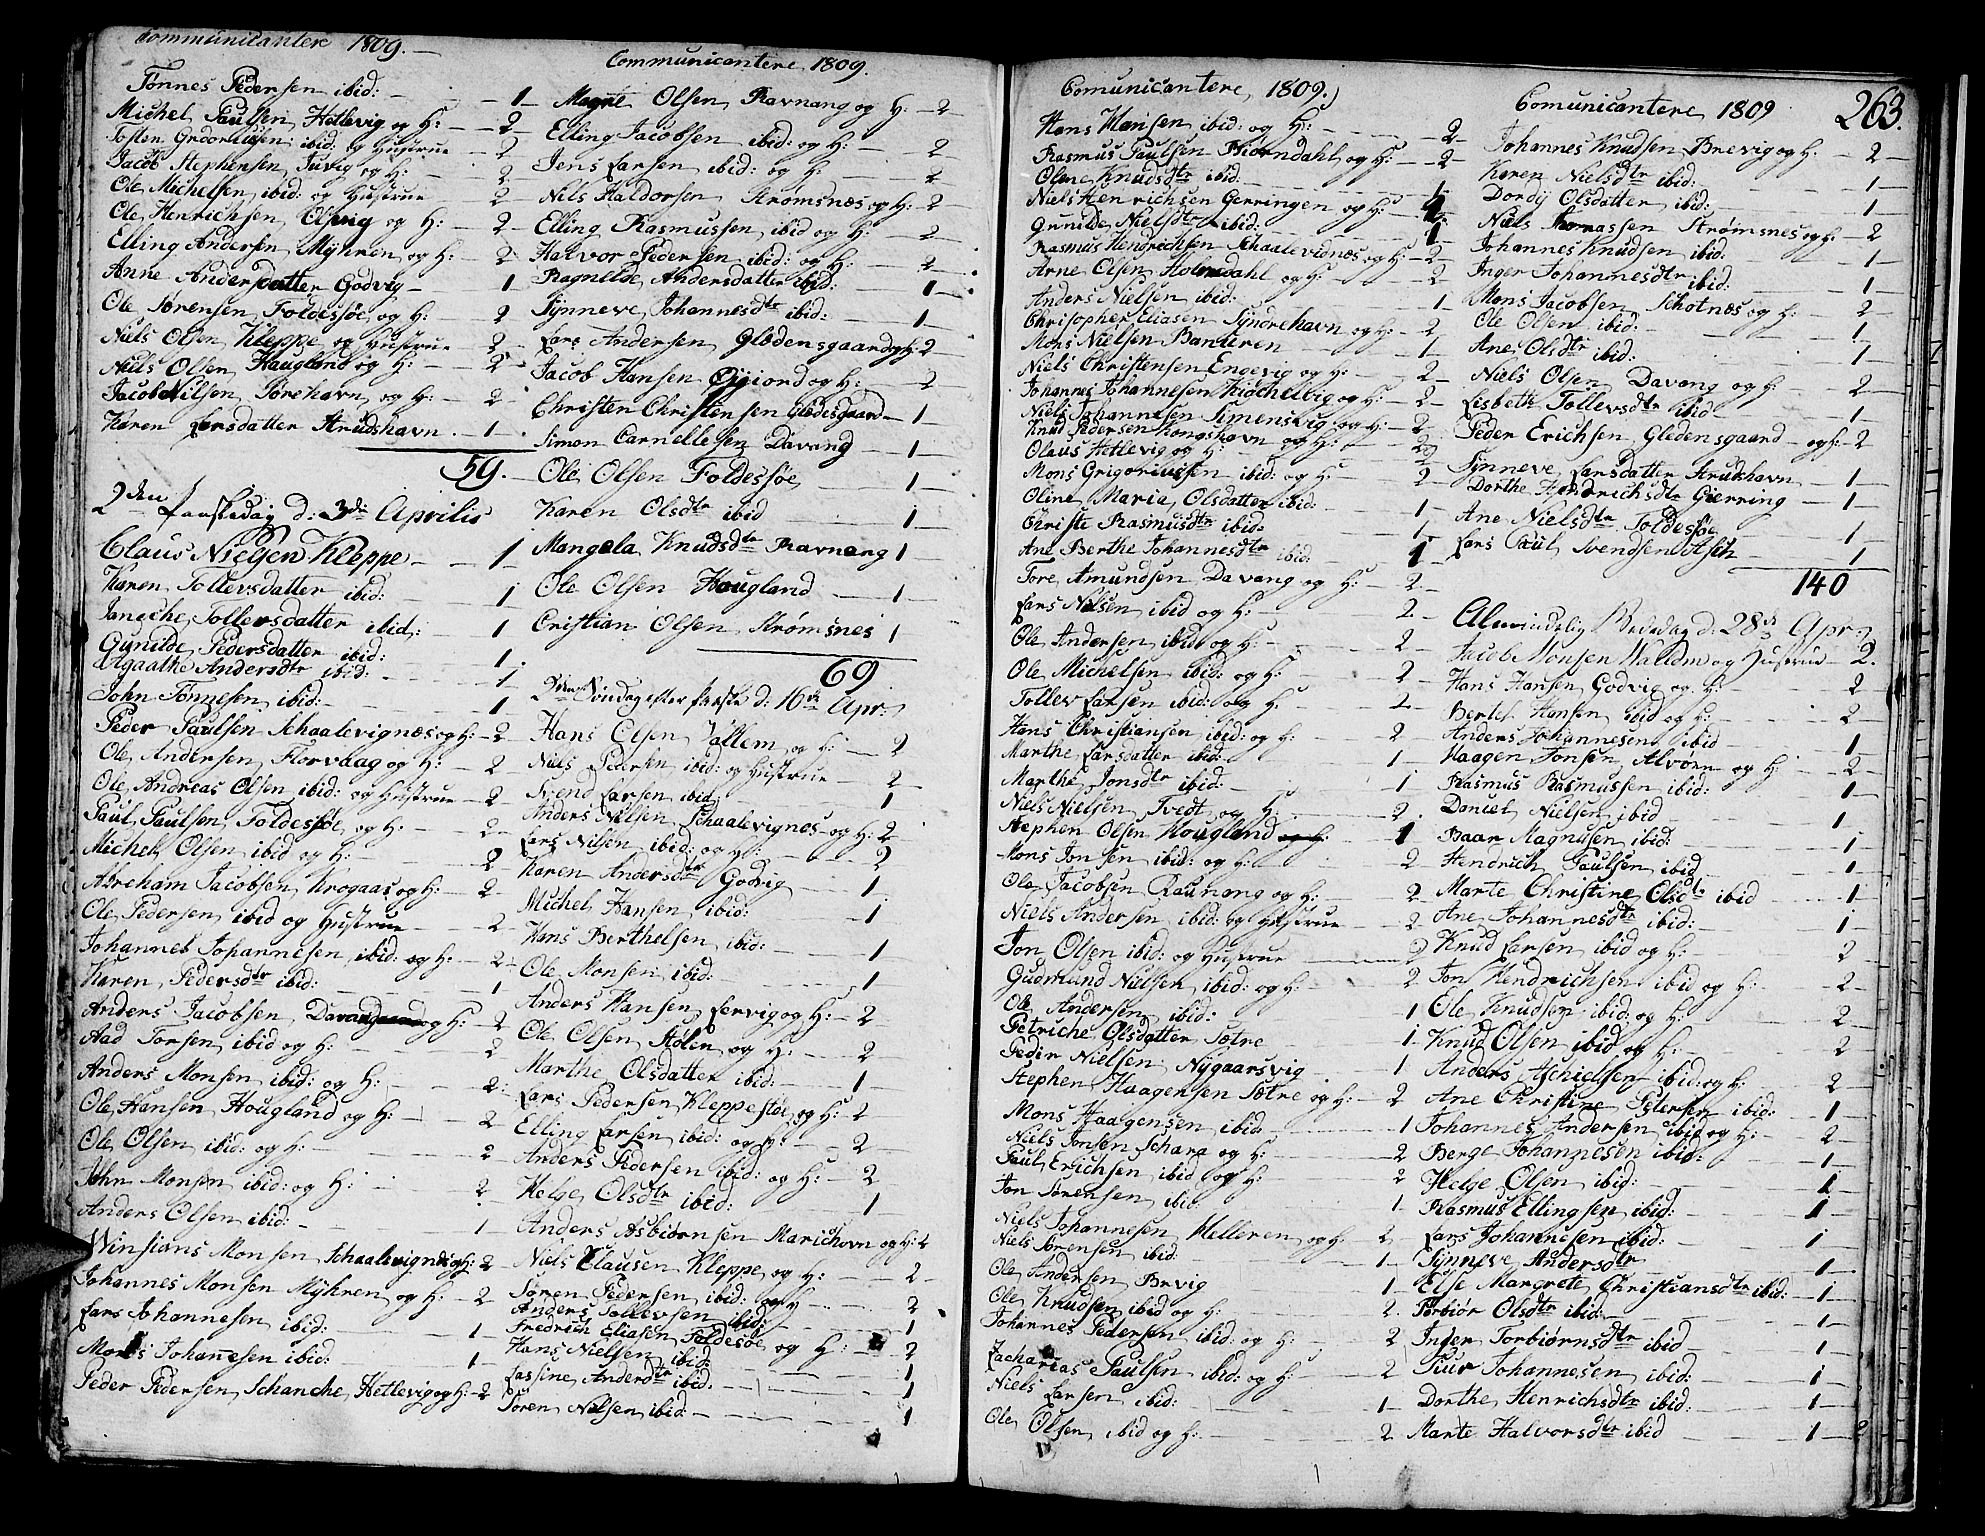 Communicantere 1809.
Tønnes Pedersen ibid: 1
Michel Paulsen, Hetlevig og H: 2
Tosten ibid: og Hustrue 2
Jacob Stephensen, Juvig og H: 2
Ole Michelsen, ibid: og Hustrue 2
Ole Henrichsen, Olsvig og H: 2
Elling Andersen, Myhren, og H: 2
Anne Andersdatter Godvig 1
Ole Sørensen, Foldessøe, og H: 2
Niels Olsen, Kleppe, og Hustrue 2
Niels Olsen, Haugland og H: 2
Jacob Nilsen, Sørehavn, og H: 2
Karen Larsdatter Strudshavn 1
59.
2den Paaskedag d: 3die Aprilis
Claus Nielsen Kleppe 1
Karen Tollevsdatter ibid: 1
Tollevsdatter ibid: 1
Gunilde Pedersdatter ibid: 1
Agaathe Andersdtr ibid: 1
John Tønnesen, ibid: 1
Peder Paulsen Schaalevignæs og H: 2
Ole Andersen, Florvaag og H: 2
Ole Andreas Olsen ibid: og Hustrue 2
Paul Paulsen, Foldessøe, og H: 2
Michel Olsen ibid og H: 2
Abraham Jacobsen, Krogaas og H: 2
Ole Pedersen, ibid og Hustrue 2
Johannes Johannesen, ibid: og H: 2
Karen Pedersdtr ibid: 1
Anders Jacobsen, Davangaard og H: 2
Aad Torsen, ibid og H: 2
Anders Monsen, ibid: og H: 2
Ole Hansen, Hougland og H: 2
Ole Olsen, ibid: og H: 2
John Monsen ibid: og H: 2
Anders Olsen ibid: 1
Monsen, Schaalevignæs og H: 2
Johannes Monsen Myhren, og H: 2
Lars Johannesen, ibid: 1
Mons Johanesen ibid: 1
Peder Pedersen, Schanche, Hetlevig og H: 2
Communicantere, 1809.
Magne Olsen, Ravnang og H: 2
Elling Jacobsen ibid: og H: 2
Jens Larsen ibid: og H: 2
Nils Haldorsen Strømsnæs og H: 2
Elling Rasmussen, ibid og H: 2
Halvor Pedersen ibid: og H: 2
Ragnilde, Andersdatter ibid: 1
Synneve, Johannesdtr ibid: 1
Lars Andersen, Glædensgaard og H: 2
Jacob Hansen og H: 2
Christen Christensen Glædesgaard 1
Simon Davang 1
Ole Olsen Foldessøe 1
Karen Olsdtr ibid 1
Mangela Knudsdtr Ravnang 1
Ole Olsen Hougland 1
Cristian Olsen Strømsnes 1
69
2den Søndag efter Paaske d: 16de Apr:
Hans Olsen Vallem og H: 2
Niels Pedersen, ibid: og Hustrue 2
Svend Larsen ibid: 1
Anders Nilsen Schaalevignes og H: 2
Lars Nilsen, ibid: og H: 2
Karen Andersdtr Godvig 1
Michel Hansen, ibid: 1
Hans Berthelsen, ibid: 1
Ole Monsen, ibid: 1
Anders Hansen, Lervig og H: 2
Ole Olsen, Stølen og H: 2
Marthe Olsdatter ibid: 1
Lars Pedersen, Kleppestøe og H: 2
Elling Larsen, ibid: og H: 2
Anders Pedersen ibid: og H: 2
Helge Olsdtr ibid: 1
Anders Asbiørnsen Marichovn og H: 2
Niels Clausen Kleppe, og H: 2
Søren Pedersen, ibid: og H 2
Anders Tollevsen, ibid: 1
Fredrich Eliasen, Foldesøe, og H:
Hans Nielsen ibid: 2
Lassine, Andersdtr ibid. 1
Søren, Nilsen ibid: 1
Comunicantere, 1809.
Hans Hansen ibid: og H: 2
Rasmus Paulsen, Biørndahl og H: 2
Oline Knudsdtr ibid: 1
Niels Henrichsen Gerringen og H:
Gunilde, Nielsdtr ibid: 1
Rasmus Hendrichsen Schaalevidnæs og H: 2
Arne Olsen, Holmedahl og H: 2
Anders Nielsen ibid: 1
Chrisopher Eliasen Syndrehavn og H: 2
Mons Nielsen Banteren 1
Niels Christensen Engevig og H: 2
Johannes Johannesen, og H: 2
Niels Johannesen Simensvig og H: 2
Knud Pedersen Kongshavn og H: 2
Olaus Hetlevig og H: 2
Mons Grigoriussen ibid: og H: 2
Oline Maria, Olsdatter ibid: 1
Christe Rasmusdtr ibid: 1
Ane Berthe Johannesdtr ibid: 1
Tore, Amundsen, Davang og H: 2
Lars Nilsen ibid og H: 2
Ole Andersen ibid og H: 2
Ole Michelsen, ibid: og H: 2
Tollev Larsen ibid: og H 2
Hans Christiansen, ibid: og H: 2
Marthe Larsdatter ibid: 1
Marthe Jonsdtr ibid: 1
Niels Nielsen, Tvedt, og H 2
Stephen Olsen, Hougland 1
Mons Jonsen ibid: og H: 2
Ole Jacobsen Raunang og H: 2
Niels Andersen ibid: og Hustrue 2
Jon Olsen ibid: og Hustrue 2
Gudmund Nielsen, ibid: og H: 2
Ole Andersen, ibid: 1
Petriche Olsdatter Sætre 1
Peder Nielsen, Nygaarsvig 1
Stephen Haagensen Sætre og H: 2
Mons Haagensen, ibid 1
Niels Jonsen Schara og H: 2
Paul Erichsen ibid og H: 2
Jon Sørensen, ibid: 1
Niels Johannesen, Helleren, og H: 2
Niels Sørensen, ibid: 1
Ole Andersen, Brvig 1
Ole Knudsen, ibid og H: 2
Johannes Pedersen, ibid: og H: 2
Zacharias Paulsen, ibid: og H: 2
Niels Larsen, ibid: 1
Ole Olsen, ibid og H: 2
Comunicantere, 1809
263.
Johannes Knudsen, Brevig og H. 2
Karen Nielsdtr ibid: 1
Dordy Olsdatter, ibid: 1
Niels Thomassen Strømsnes og H: 2
Johannes Knudsen, ibid: 1
Inger Johannesdtr ibid: 1
Mons Jacobsen, Schotnæs og H: 2
Ole Olsen ibid: 1
Ane Olsdtr ibid: 1
Niels Olsen, Davang og H: 2
Lisbeth Tollevsdtr ibid 1
Peder Erichsen, Glædensgaard og H: 2
Synneve, Larsdatter Strudshavn 1
Dorthe Hendrichsdtr Gierring 1
Ane, Nielsdtr Foldessøe 1
Lars Paul Svendsen, 1
140
Almindelig Bededag d: 28de Apr:
Jacob Monsen, og Hustrue 2
Hans Hansen, Godvig og H: 2
Bertel Hansen, ibid og H: 2
Anders Johannesen, ibid 1
Haagen Jonsen, Alvøen og H: 2
Rasmus Rasmussen, ibid: 1
Daniel Nielsen, ibid 1
Baar Magnusen, ibid: 1
Hendrich Paulsen, ibid 1
Marte Christine, Olsdtr ibid 1
Ane, Johannesdtr ibid: 1
Knud Larsen, ibid og H: 2
Jon Hendrichsen ibid og H: 2
Ole Knudsen ibid: og H: 2
Knud Olsen ibid og H: 2
Anders ibid: og H: 2
Ane Christine Petersen ibid: 1
Johannes Andersen ibid og H: 2
Berge Johannesen ibid: 1
Helge Olsen, ibid: 1
Rasmus Ellingsen, ibid: 1
Lars Johannesen ibid: 1
Synneve, Andersdtr 1
Else Margrete Christiansdtr ibid: 1
Torbiør Olsdtr ibid: 1
Inger Torbiørnsdtr ibid 1
Johannesen, ibid: 1
Dorthe, Henrichsdtr ibid: 1
Marte Halvorsdtr ibid 1